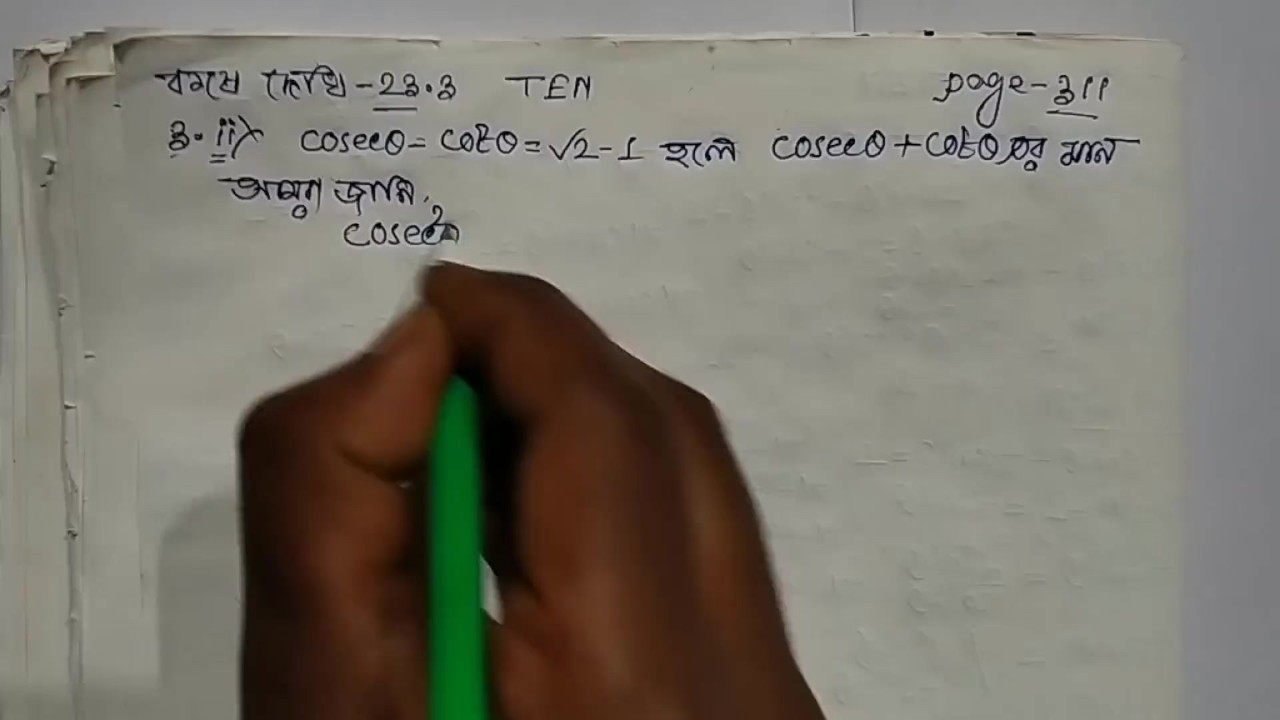 কষে দেখি-23.3 TEN page-311
3.ii) cosecθ-cotθ=√2-1 হলে cosecθ+cotθ এর মান
আমরা জানি,
cosec²